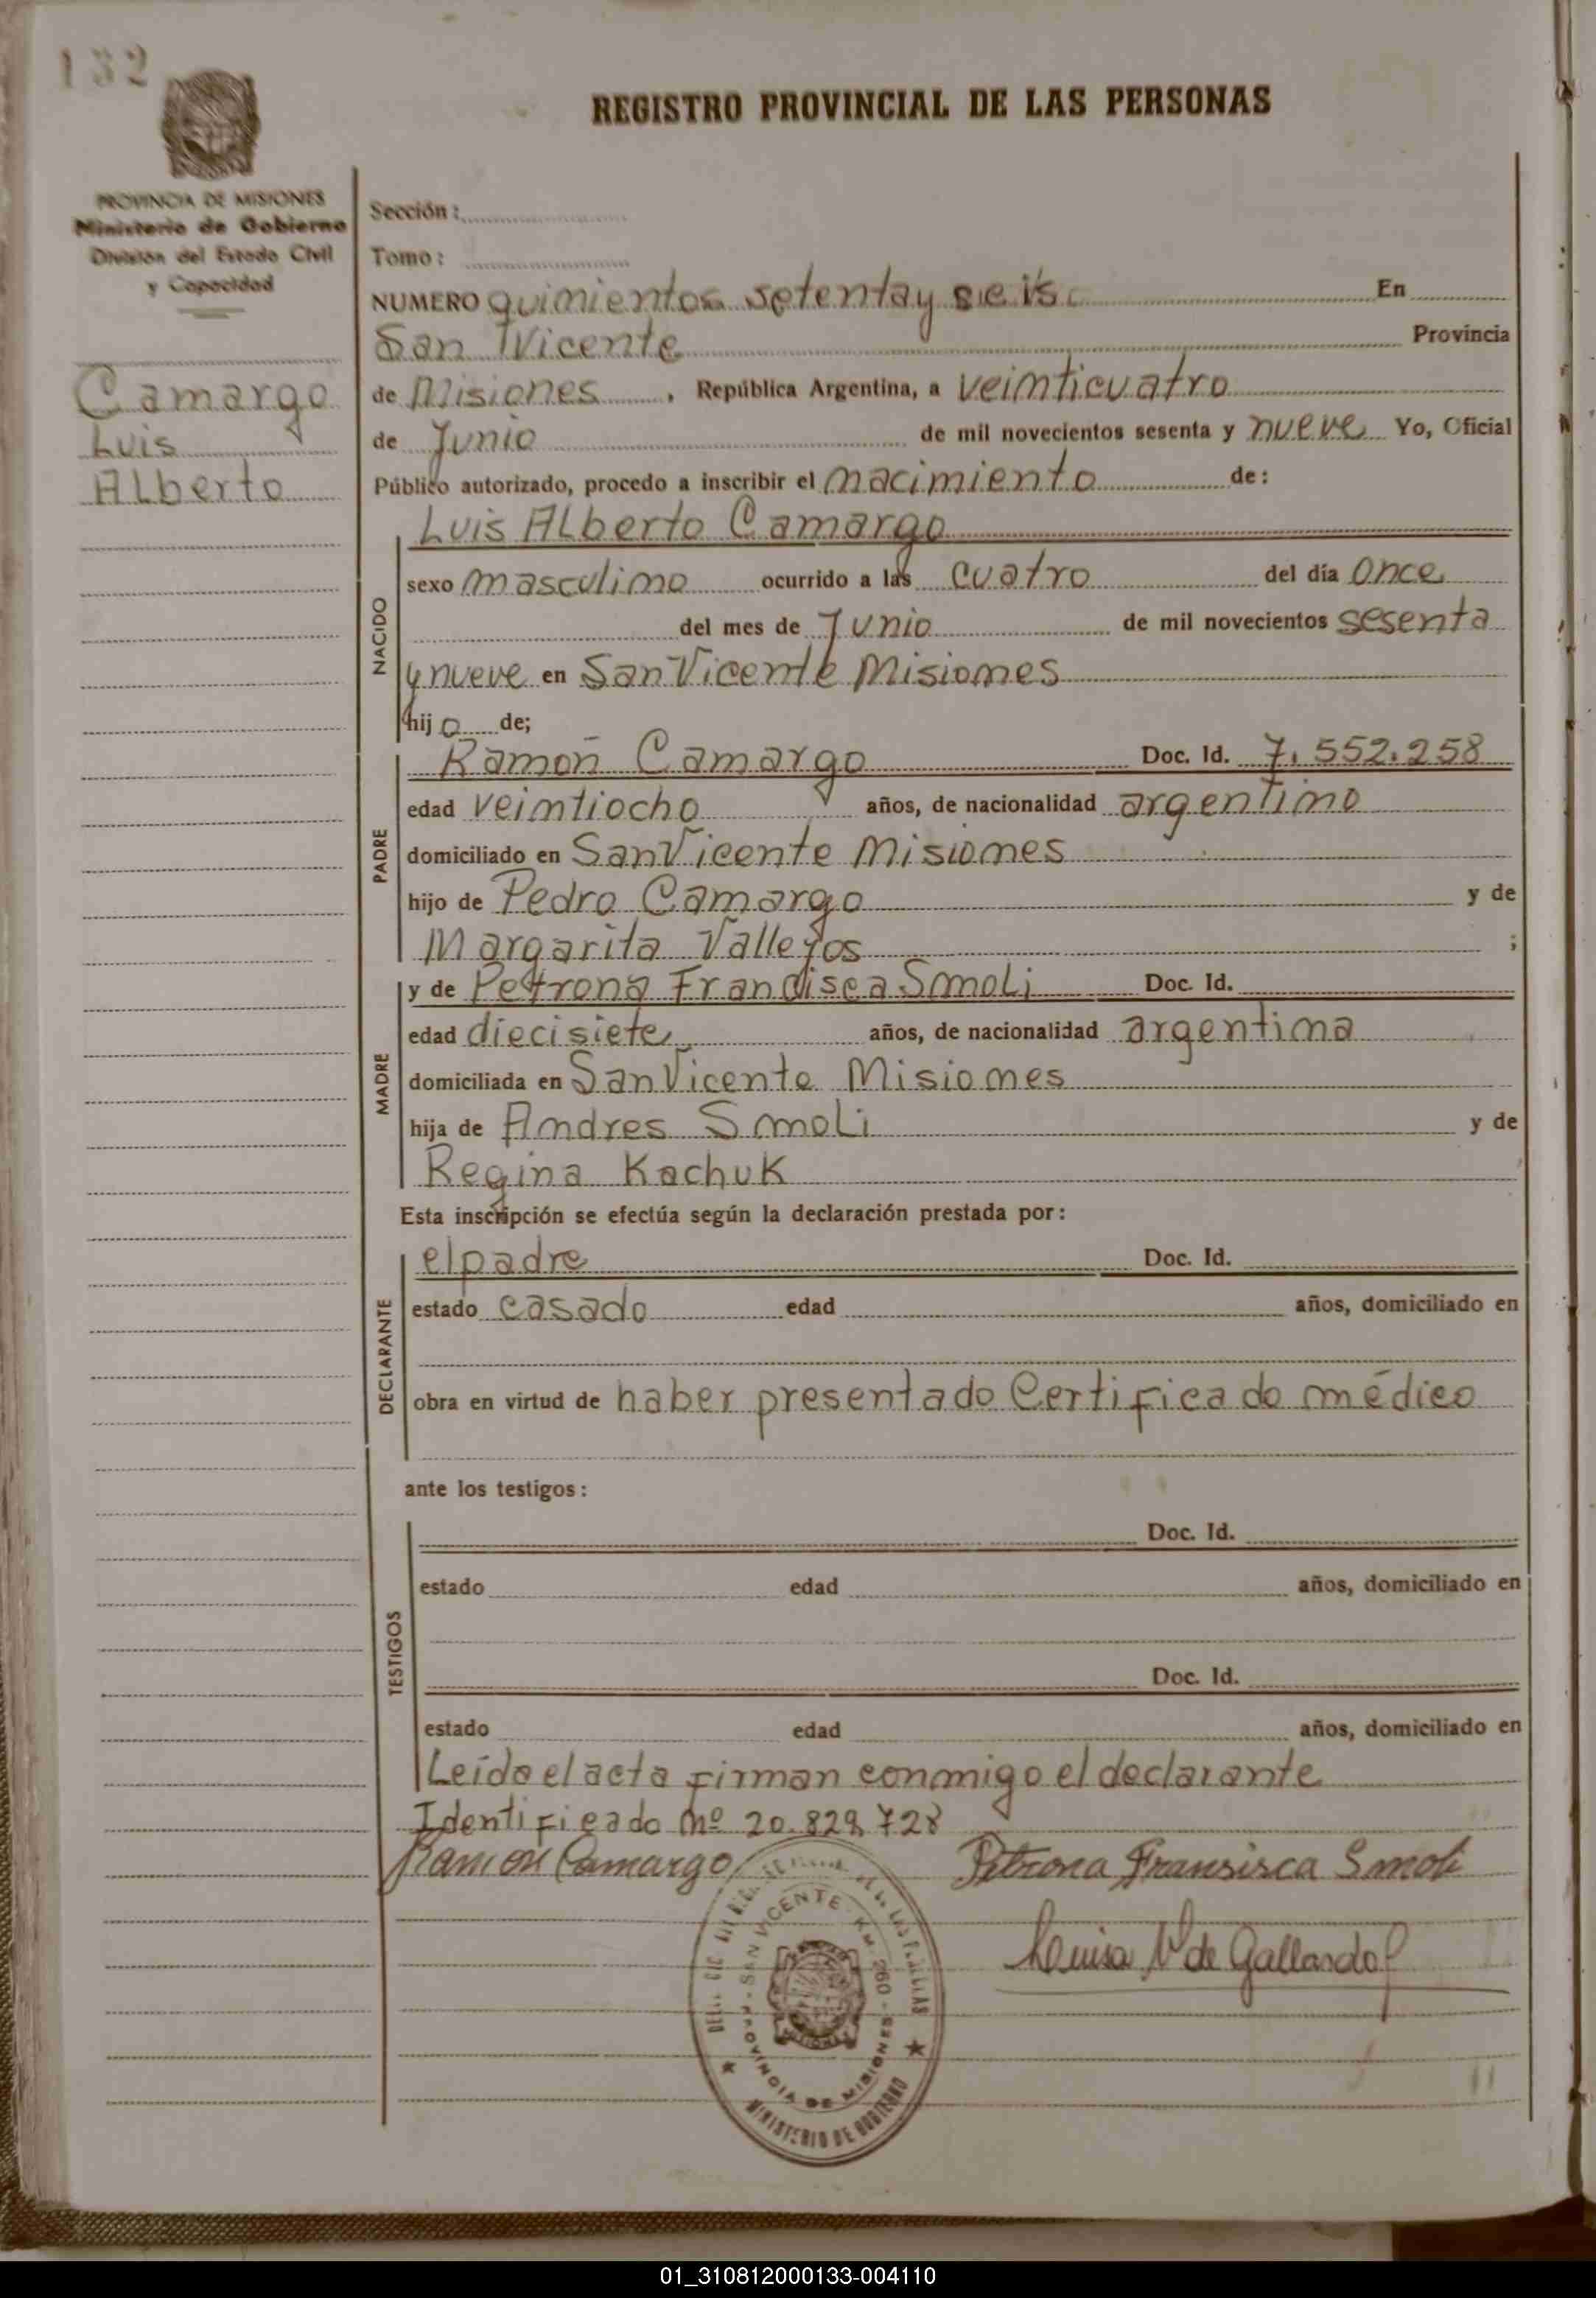 132
REGISTRO PROVINCIAL DE LAS PERSONAS
PROVINCIA DE MISIONES
Ministerio de Gobierno
División del Estado Civil
y Capacidad
Camargo
Luis
Alberto
Sección:
Tomo:
NUMERO quinientos setenta y seis En
San Vicente Provincia
de Misiones, República Argentina, a veinticuatro
de Junio de mil novecientos sesenta y nueve Yo, Oficial
Público autorizado, procedo a inscribir el nacimiento de:
NACIDO
Luis Alberto Camargo
sexo masculino ocurrido a las cuatro del día once
del mes de Junio de mil novecientos sesenta
y nueve en San Vicente Misiones
hijo de;
PADRE
Ramon Camargo Doc. Id. 7.552.258
edad veintiocho años, de nacionalidad argentino
domiciliado en San Vicente Misiones
hijo de Pedro Camargo y de
Margarita Vallejos ;
MADRE
y de Petrona Francisca Smoli Doc. Id.
edad diecisiete años, de nacionalidad argentina
domiciliada en San Vicente Misiones
hija de Andres Smoli y de
Regina Kachuk
Esta inscripción se efectúa según la declaración prestada por:
DECLARANTE
el padre Doc. Id.
estado casado edad años, domiciliado en
obra en virtud de haber presentado Certificado médico
ante los testigos:
TESTIGOS
Doc. Id.
estado edad años, domiciliado en
Doc. Id.
estado edad años, domiciliado en
Leído el acta firman conmigo el declarante
Identificado Nº 20.829.728
Ramon Camargo Petrona Fransisca Smoli
Luisa V de Gallardo
SAN VICENTE - KM. 260 -
PROVINCIA DE MISIONES
MINISTERIO DE GOBIERNO
01_310812000133-004110